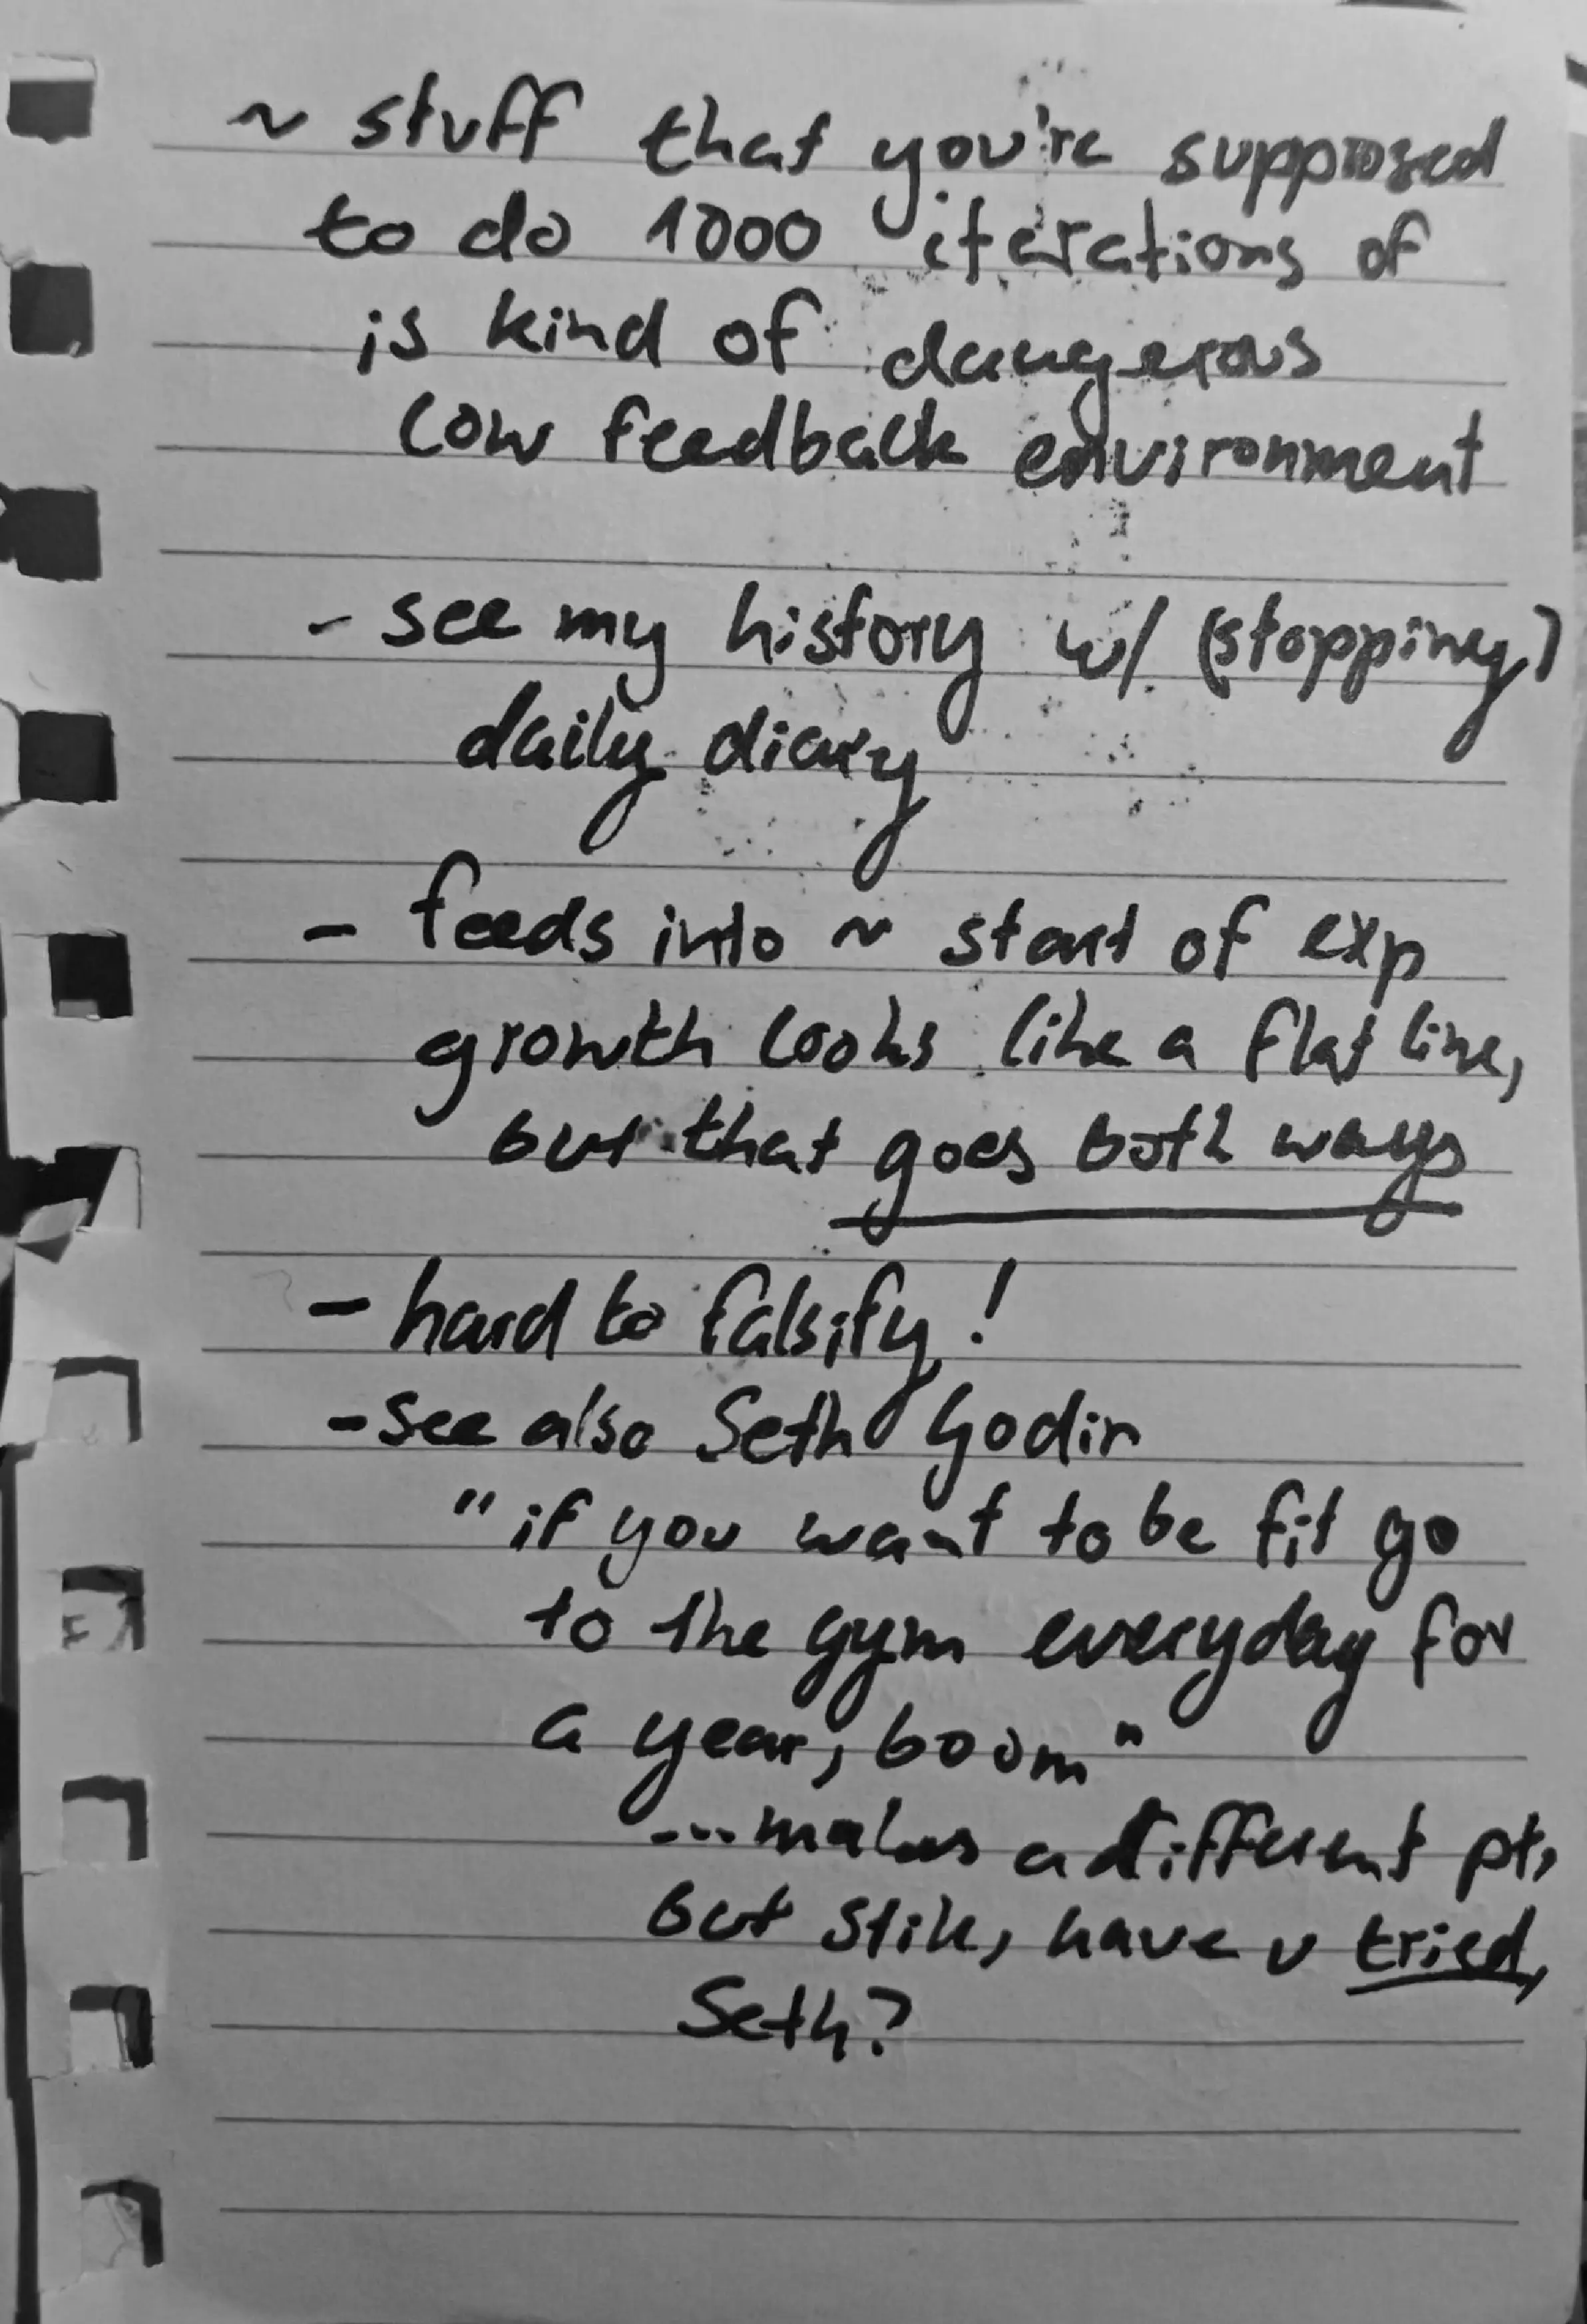 ~ stuff that you're supposed
to do 1000 iterations of
is kind of dangerous
low feedback environment
- see my history w/ (stopping)
daily diary
- feeds into ~ start of exp
growth looks like a flat line,
but that goes both ways
- hard to falsify!
- see also Seth Godin
"if you want to be fit go
to the gym everyday for
a year, boom"
...makes a different pt,
but still, have u tried,
Seth?